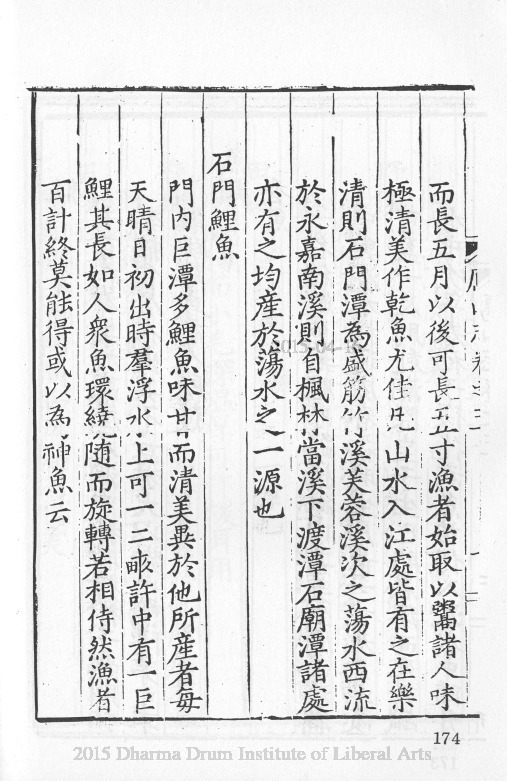 而長五月以後可長五六寸漁者始取以鬻諸人味
極清美作乾魚尤佳凡山水入江處皆有之在樂
清則石門潭為盛筋竹溪芙蓉溪次之蕩水西流
於永嘉南溪則自楓林當溪下渡潭石廟潭諸處
亦有之均産於蕩水之一源也
石門鯉魚
門内巨潭多鯉魚味甘而清美異於他所産者毎
天晴日初出時羣浮水上可一二畝許中有一巨
鯉其長如人衆魚環繞隨而旋轉若相侍然漁者
百計終莫能得或以為神魚云
174
2015 Dharma Drum Institute of Liberal Arts